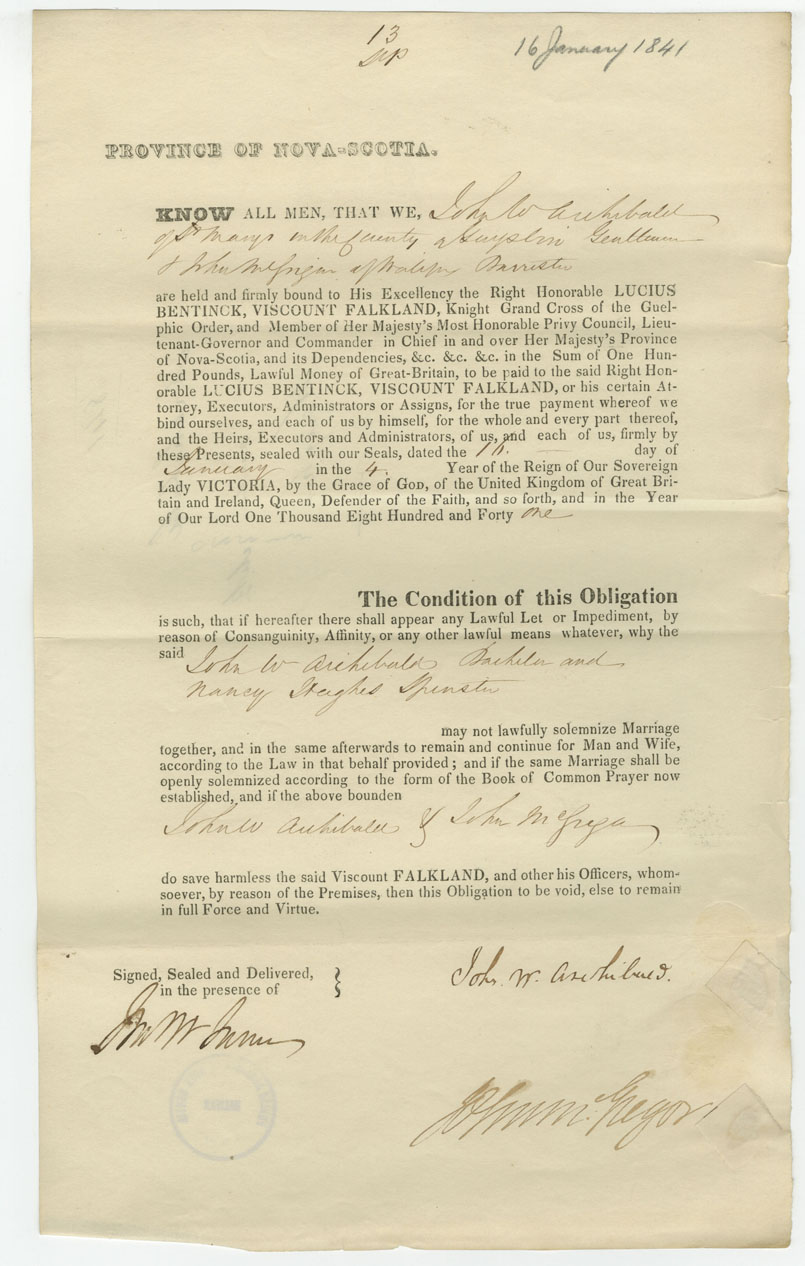 13
16 January 1841
PROVINCE OF NOVA-SCOTIA.
KNOW ALL MEN, THAT WE, John W Archibald
of St Marys in the County of Guysboro Gentleman
& John McGregor of Halifax Barrister
are held and firmly bound to His Excellency the Right Honorable LUCIUS
BENTINCK, VISCOUNT FALKLAND, Knight Grand Cross of the Guel-
phic Order, and Member of Her Majesty's Most Honorable Privy Council, Lieu-
tenant-Governor and Commander in Chief in and over Her Majesty's Province
of Nova-Scotia, and its Dependencies, &c. &c. &c. in the Sum of One Hun-
dred Pounds, Lawful Money of Great-Britain, to be paid to the said Right Hon-
orable LUCIUS BENTINCK, VISCOUNT FALKLAND, or his certain At-
torney, Executors, Administrators or Assigns, for the true payment whereof we
bind ourselves, and each of us by himself, for the whole and every part thereof,
and the Heirs, Executors and Administrators, of us, and each of us, firmly by
these Presents, sealed with our Seals, dated the 16. day of
January in the 4. Year of the Reign of Our Sovereign
Lady VICTORIA, by the Grace of God, of the United Kingdom of Great Bri-
tain and Ireland, Queen, Defender of the Faith, and so forth, and in the Year
of Our Lord One Thousand Eight Hundred and Forty one
The Condition of this Obligation
is such, that if hereafter there shall appear any Lawful Let or Impediment, by
reason of Consanguinity, Affinity, or any other lawful means whatever, why the
said John W Archibald Bachelor and
Nancy Hughes Spinster
may not lawfully solemnize Marriage
together, and in the same afterwards to remain and continue for Man and Wife,
according to the Law in that behalf provided; and if the same Marriage shall be
openly solemnized according to the form of the Book of Common Prayer now
established, and if the above bounden
John W Archibald & John McGregor
do save harmless the said Viscount FALKLAND, and other his Officers, whom-
soever, by reason of the Premises, then this Obligation to be void, else to remain
in full Force and Virtue.
Signed, Sealed and Delivered,
in the presence of
John W. Archibald.
John McGregor